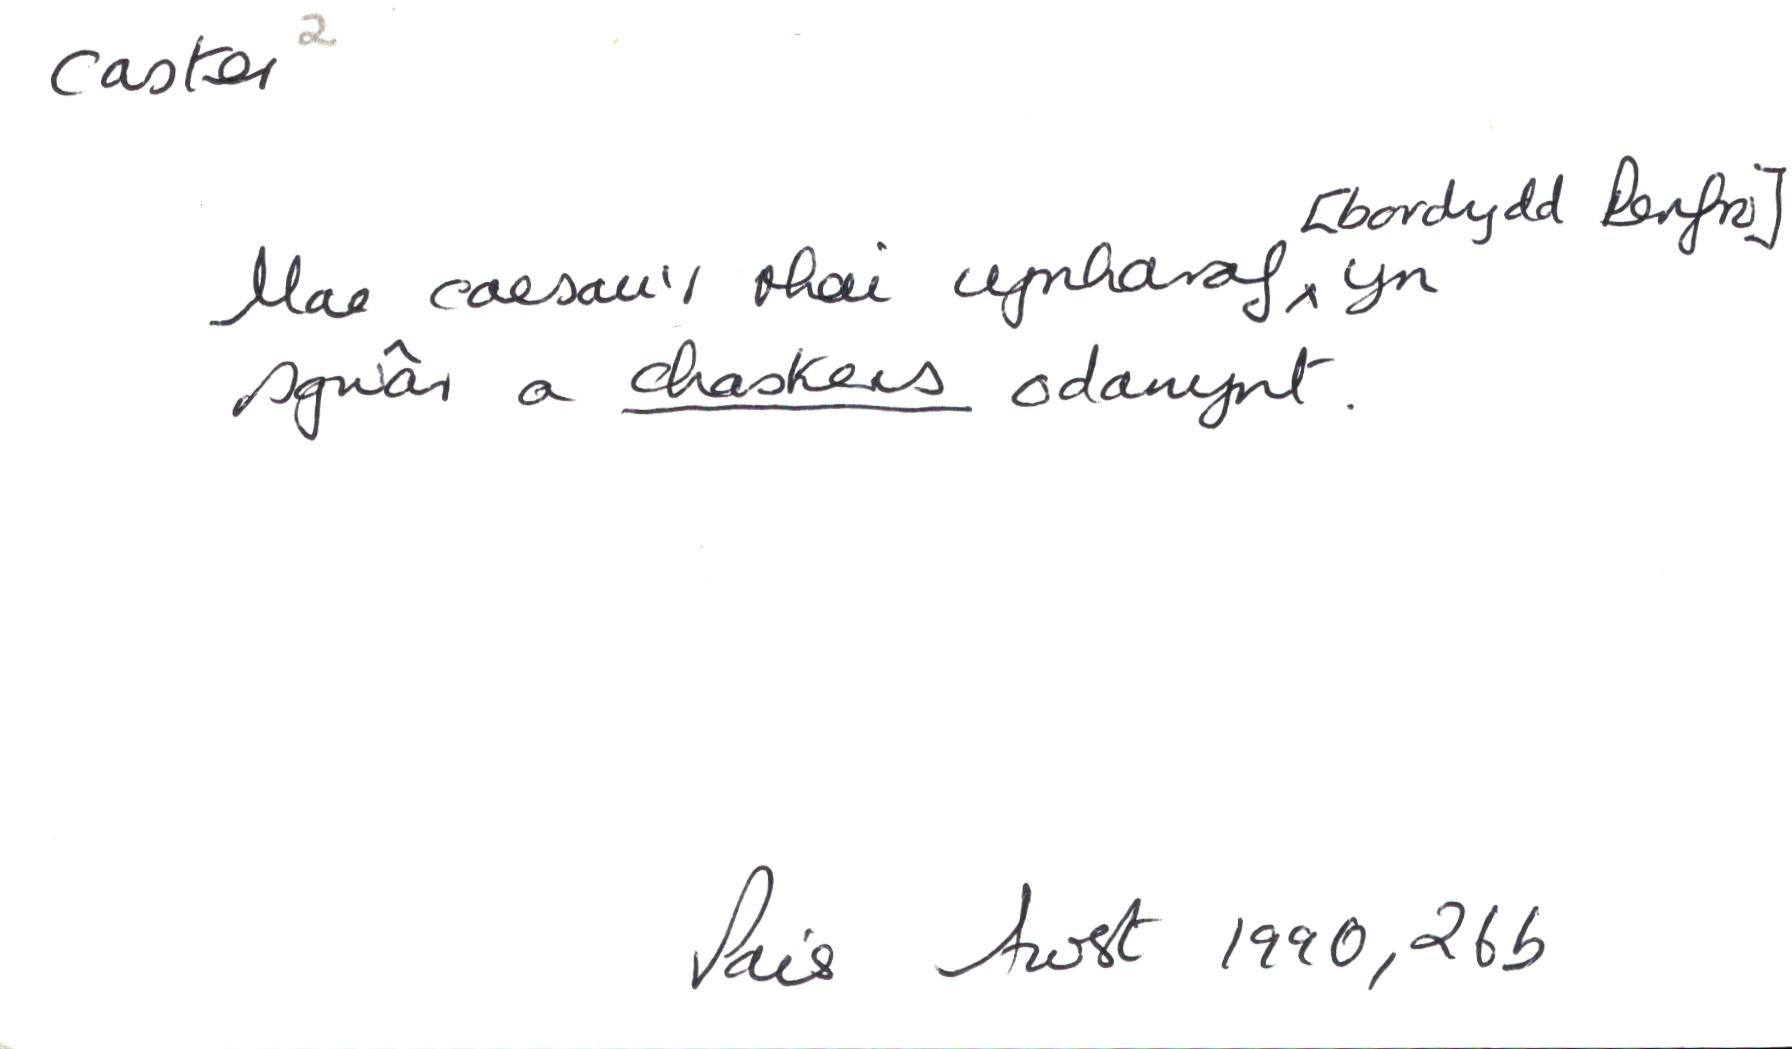 caster 2
[bordydd Penfro]
Mae coesau'r rhai cynharaf ^ yn
sgwâr a chasters odanynt.
Pais Awst 1990, 26b